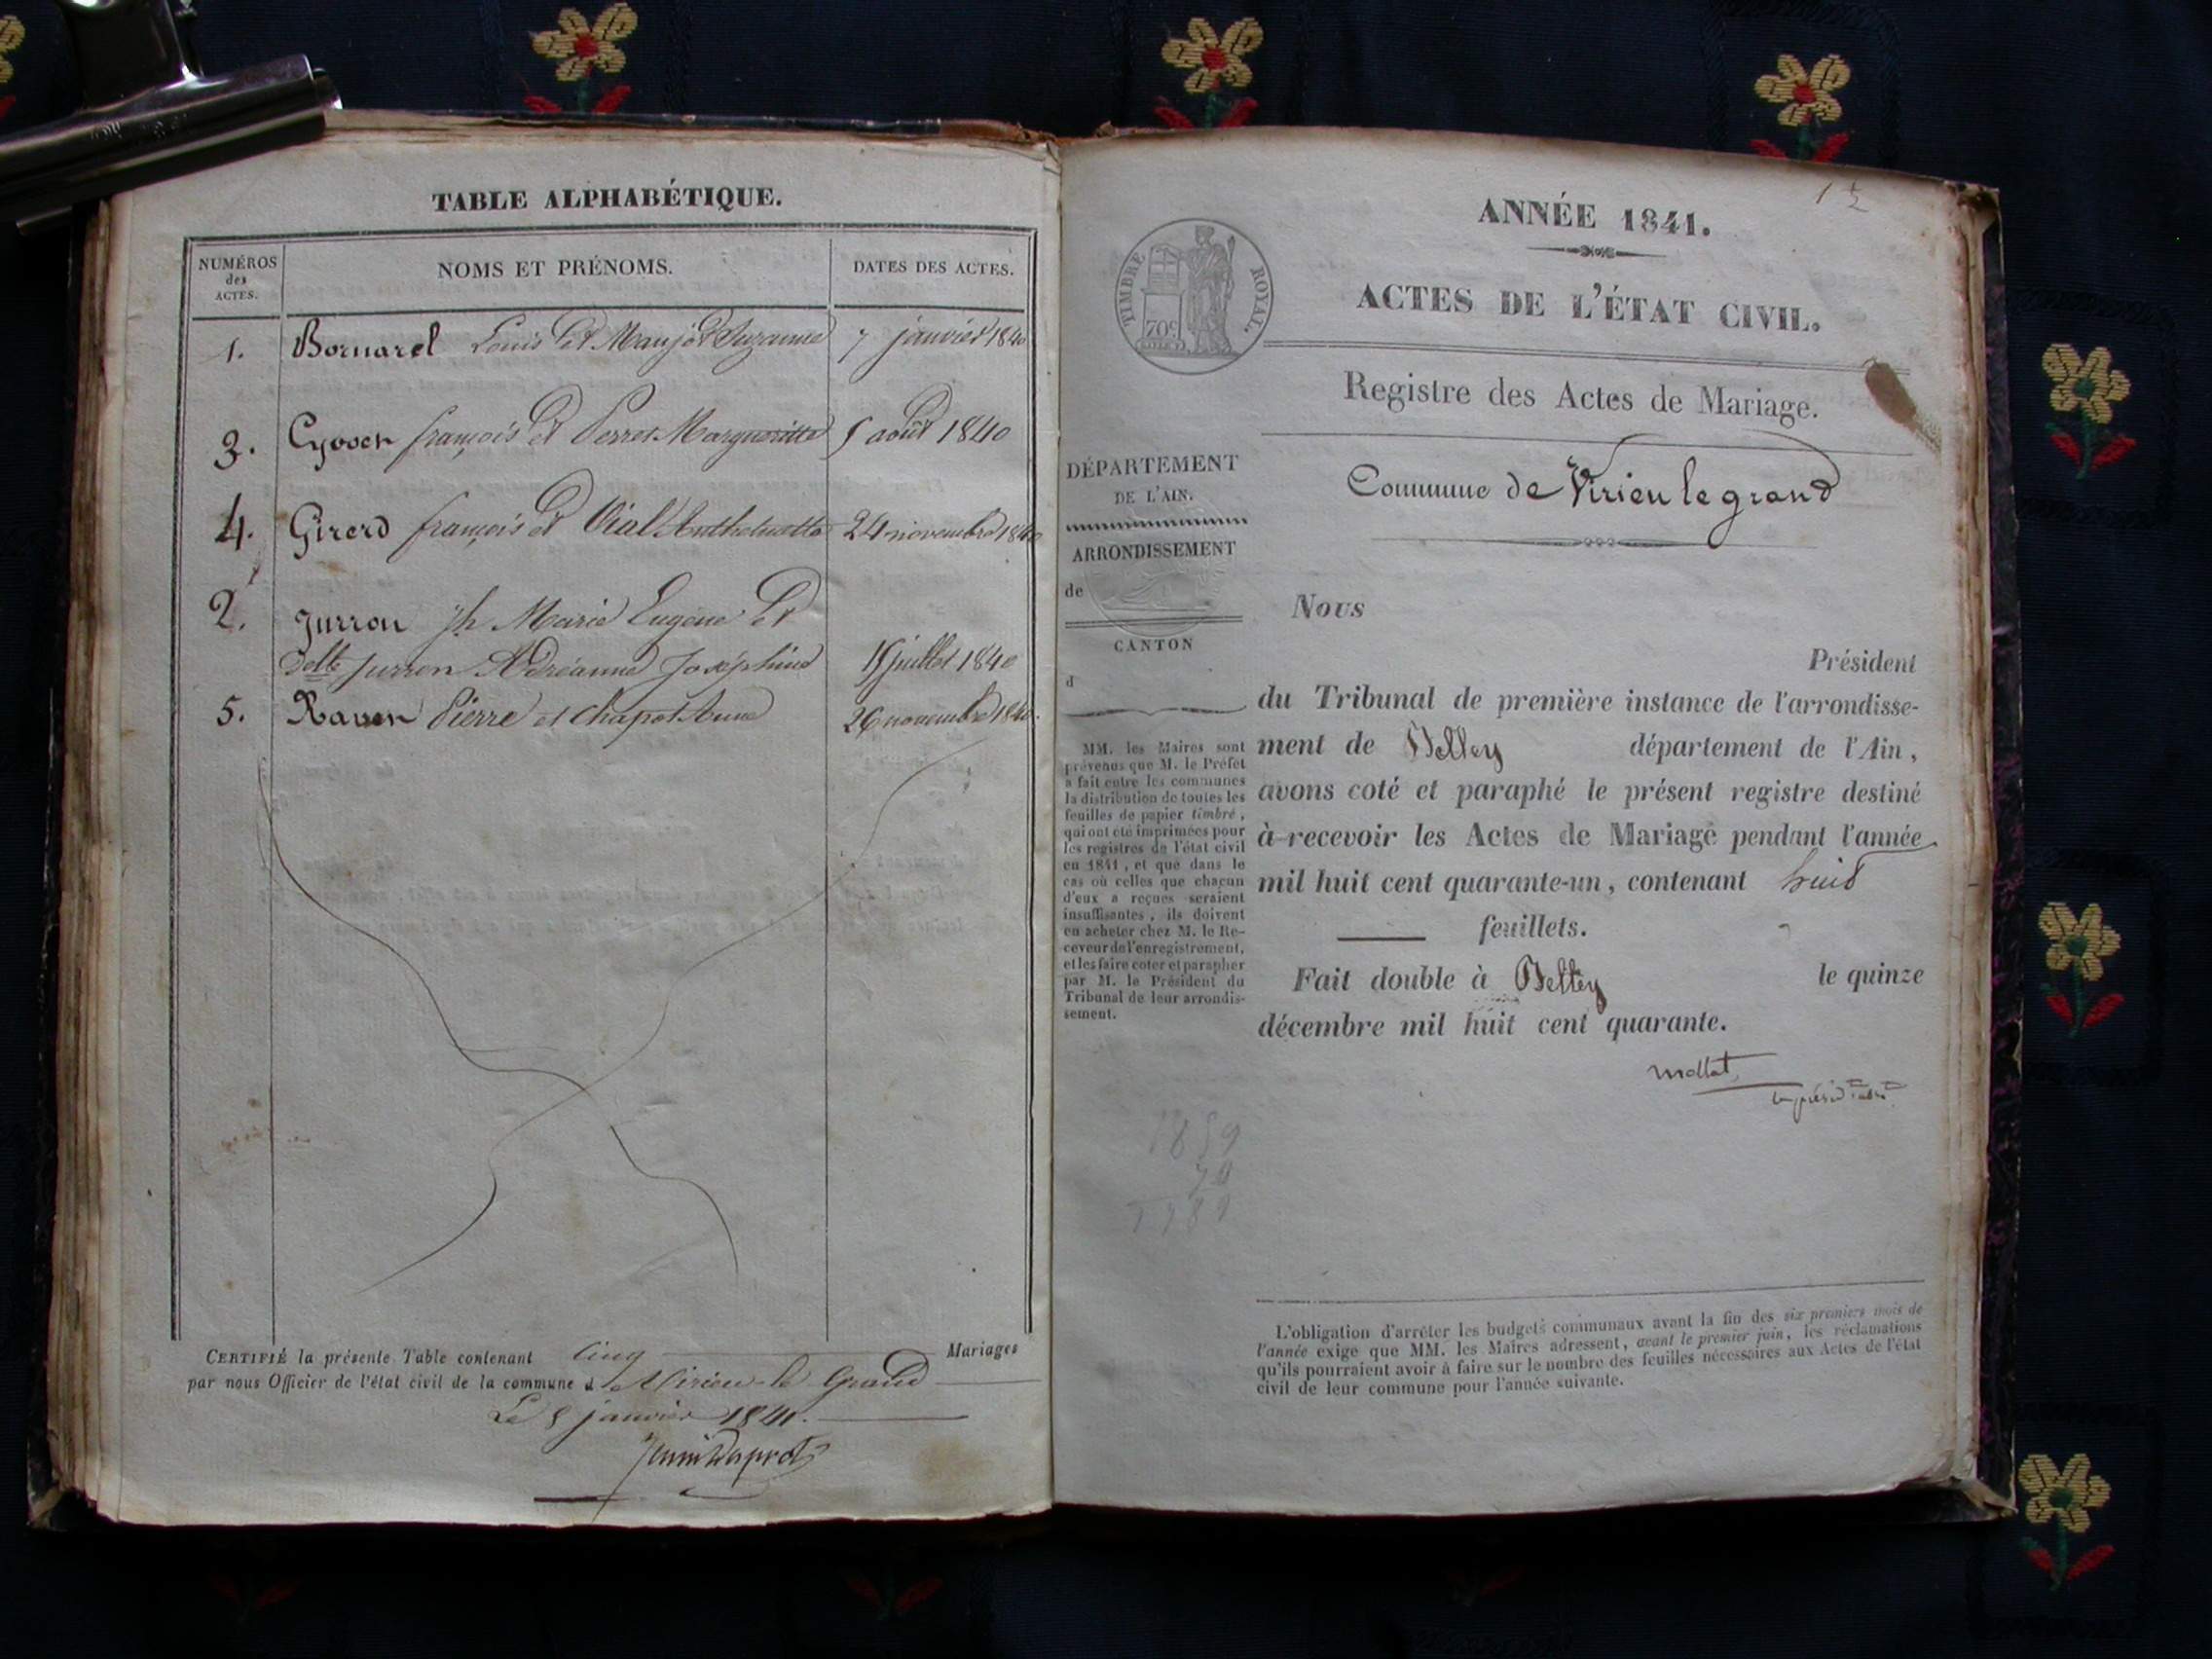 TABLE ALPHABÉTIQUE.
NUMÉROS
des
ACTES.
NOMS ET PRÉNOMS.
DATES DES ACTES.
1. Bornarel Louis et Manjot Suzanne 7 janvier 1840
3. Cyvoct françois et Perret Margueritte 5 août 1840
4. Girerd françois et Vial Anthelmette 24 novembre 1840
2. Jurron jh Marie Eugène et
delle Jurron Adréanne Joséphine 15 juillet 1840
5. Pierre et Chapot Anne 26 novembre 1840.
CERTIFIÉ la présente Table contenant Cinq Mariages
par nous Officier de l'état civil de la commune de Virieu-le-Grand
Le 8 janvier 1841.
ANNÉE 1841.
TIMBRE ROYAL.
70c
ACTES DE L'ÉTAT CIVIL.
Registre des Actes de Mariage.
Commune de Virieu le grand
DÉPARTEMENT
DE L'AIN.
ARRONDISSEMENT
de
CANTON
d
MM. les Maires sont
prévenus que M. le Préfet
a fait entre les communes
la distribution de toutes les
feuilles de papier timbré,
qui ont été imprimées pour
les registres de l'état civil
en 1841, et que dans le
cas où celles que chacun
d'eux a reçues seraient
insuffisantes, ils doivent
en acheter chez M. le Re-
ceveur de l'enregistrement,
et les faire coter et parapher
par M. le Président du
Tribunal de leur arrondis-
sement.
Nous
Président
du Tribunal de première instance de l'arrondisse-
ment de Belley département de l'Ain,
avons coté et paraphé le présent registre destiné
à recevoir les Actes de Mariage pendant l'année
mil huit cent quarante-un, contenant huit
feuillets.
Fait double à Belley le quinze
décembre mil huit cent quarante.
mollat
1859
L'obligation d'arrêter les budgets communaux avant la fin des six premiers mois de
l'année exige que MM. les Maires adressent, avant le premier juin, les réclamations
qu'ils pourraient avoir à faire sur le nombre des feuilles nécessaires aux Actes de l'état
civil de leur commune pour l'année suivante.